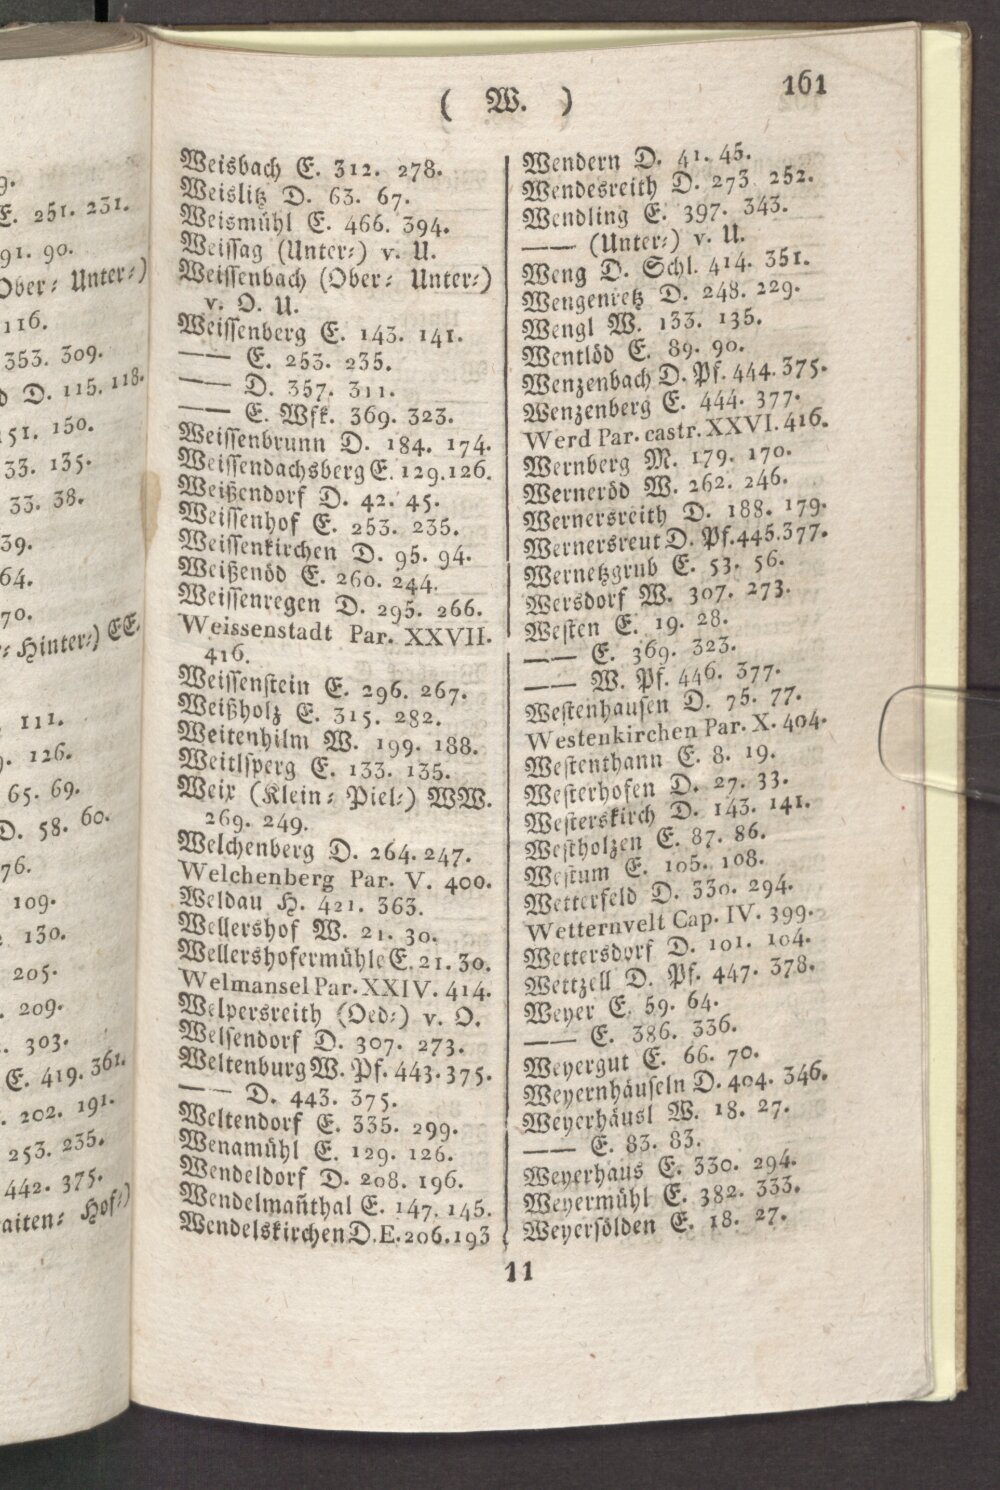 9.
E. 251. 231.
91. 90.
Ober⸗ Unter⸗)
116.
353. 309.
D. 115. 118.
151. 150.
33. 135.
33. 38.
39.
64.
70.
Hinter⸗) EE.
111.
126.
65. 69.
D. 58. 60.
76.
109.
130.
205.
209.
303.
E. 419. 361.
202. 191.
253. 235.
442. 375.
aiten⸗ Hof⸗)
( W. )
161
Weisbach E. 312. 278.
Weislitz D. 63. 67.
Weismühl E. 466. 394.
Weissag (Unter⸗) v. U.
Weissenbach (Ober⸗ Unter⸗)
v. O. U.
Weissenberg E. 143. 141.
—— E. 253. 235.
—— D. 357. 311.
—— E. Wfk. 369. 323.
Weissenbrunn D. 184. 174.
Weissendachsberg E. 129. 126.
Weißendorf D. 42. 45.
Weissenhof E. 253. 235.
Weissenkirchen D. 95. 94.
Weißenöd E. 260. 244.
Weissenregen D. 295. 266.
Weissenstadt Par. XXVII.
416.
Weissenstein E. 296. 267.
Weißholz E. 315. 282.
Weitenhilm W. 199. 188.
Weitlsperg E. 133. 135.
Weix (Klein⸗ Piel⸗) WW.
269. 249.
Welchenberg D. 264. 247.
Welchenberg Par. V. 400.
Weldau H. 421. 363.
Wellershof W. 21. 30.
Wellershofermühle E. 21. 30.
Welmansel Par. XXIV. 414.
Welpersreith (Oed⸗) v. O.
Welsendorf D. 307. 273.
Weltenburg W. Pf. 443. 375.
—— D. 443. 375.
Weltendorf E. 335. 299.
Wenamühl E. 129. 126.
Wendeldorf D. 208. 196.
Wendelmañthal E. 147. 145.
Wendelskirchen D. E. 206. 193
Wendern D. 41. 45.
Wendesreith D. 273 252.
Wendling E. 397. 343.
—— (Unter⸗) v. U.
Weng D. Schl. 414. 351.
Wengenretz D. 248. 229.
Wengl W. 133. 135.
Wentlöd E. 89. 90.
Wenzenbach D. Pf. 444. 375.
Wenzenberg E. 444. 377.
Werd Par. castr. XXVI. 416.
Wernberg M. 179. 170.
Werneröd W. 262. 246.
Wernersreith D. 188. 179.
Wernersreut D. Pf. 445. 377.
Wernetzgrub E. 53. 56.
Wersdorf W. 307. 273.
Westen E. 19. 28.
—— E. 369. 323.
—— W. Pf. 446. 377.
Westenhausen D. 75. 77.
Westenkirchen Par. X. 404.
Westenthann E. 8. 19.
Westerhofen D. 27. 33.
Westerskirch D. 143. 141.
Westholzen E. 87. 86.
Westum E. 105. 108.
Wetterfeld D. 330. 294.
Wetternvelt Cap. IV. 399.
Wettersdorf D. 101. 104.
Wettzell D. Pf. 447. 378.
Weyer E. 59. 64.
—— E. 386. 336.
Weyergut E. 66. 70.
Weyernhäuseln D. 404. 346.
Weyerhäusl W. 18. 27.
—— E. 83. 83.
Weyerhaus E. 330. 294.
Weyermühl E. 382. 333.
Weyersölden E. 18. 27.
11